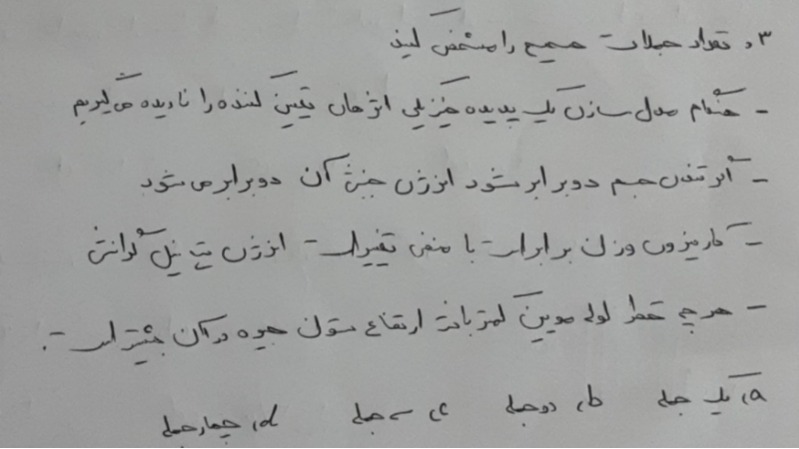 ۳, تعداد جملات صحیح را مشخص کنید
- هنگام مدل سازی یک پدیده فیزیکی اثرهای تعیین کننده را نادیده می‌گیریم
- اگر تندی جسم دو برابر شود انرژی جنبشی آن دو برابر می شود
- کار نیروی وزن برابر است با منفی تغییرات انرژی پتانسیل گرانشی
- هر چه قطر لوله مویین کمتر باشد ارتفاع ستون جیوه در آن بیشتر است.
a, یک جمله b, دو جمله c, سه جمله d, چهار جمله